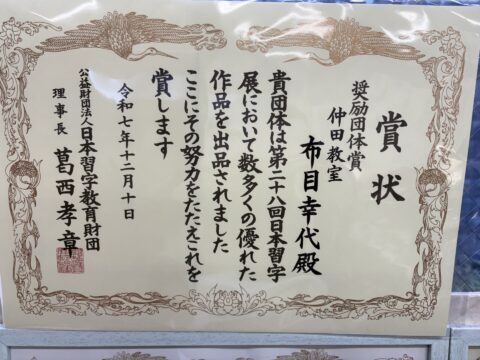 賞状
奨励団体賞
仲田教室
布目幸代殿
貴団体は第二十八回日本習字
展において数多くの優れた
作品を出品されました
ここにその努力をたたえこれを
賞します
令和七年十二月十日
公益財団法人日本習字教育財団
理事長 葛西孝章